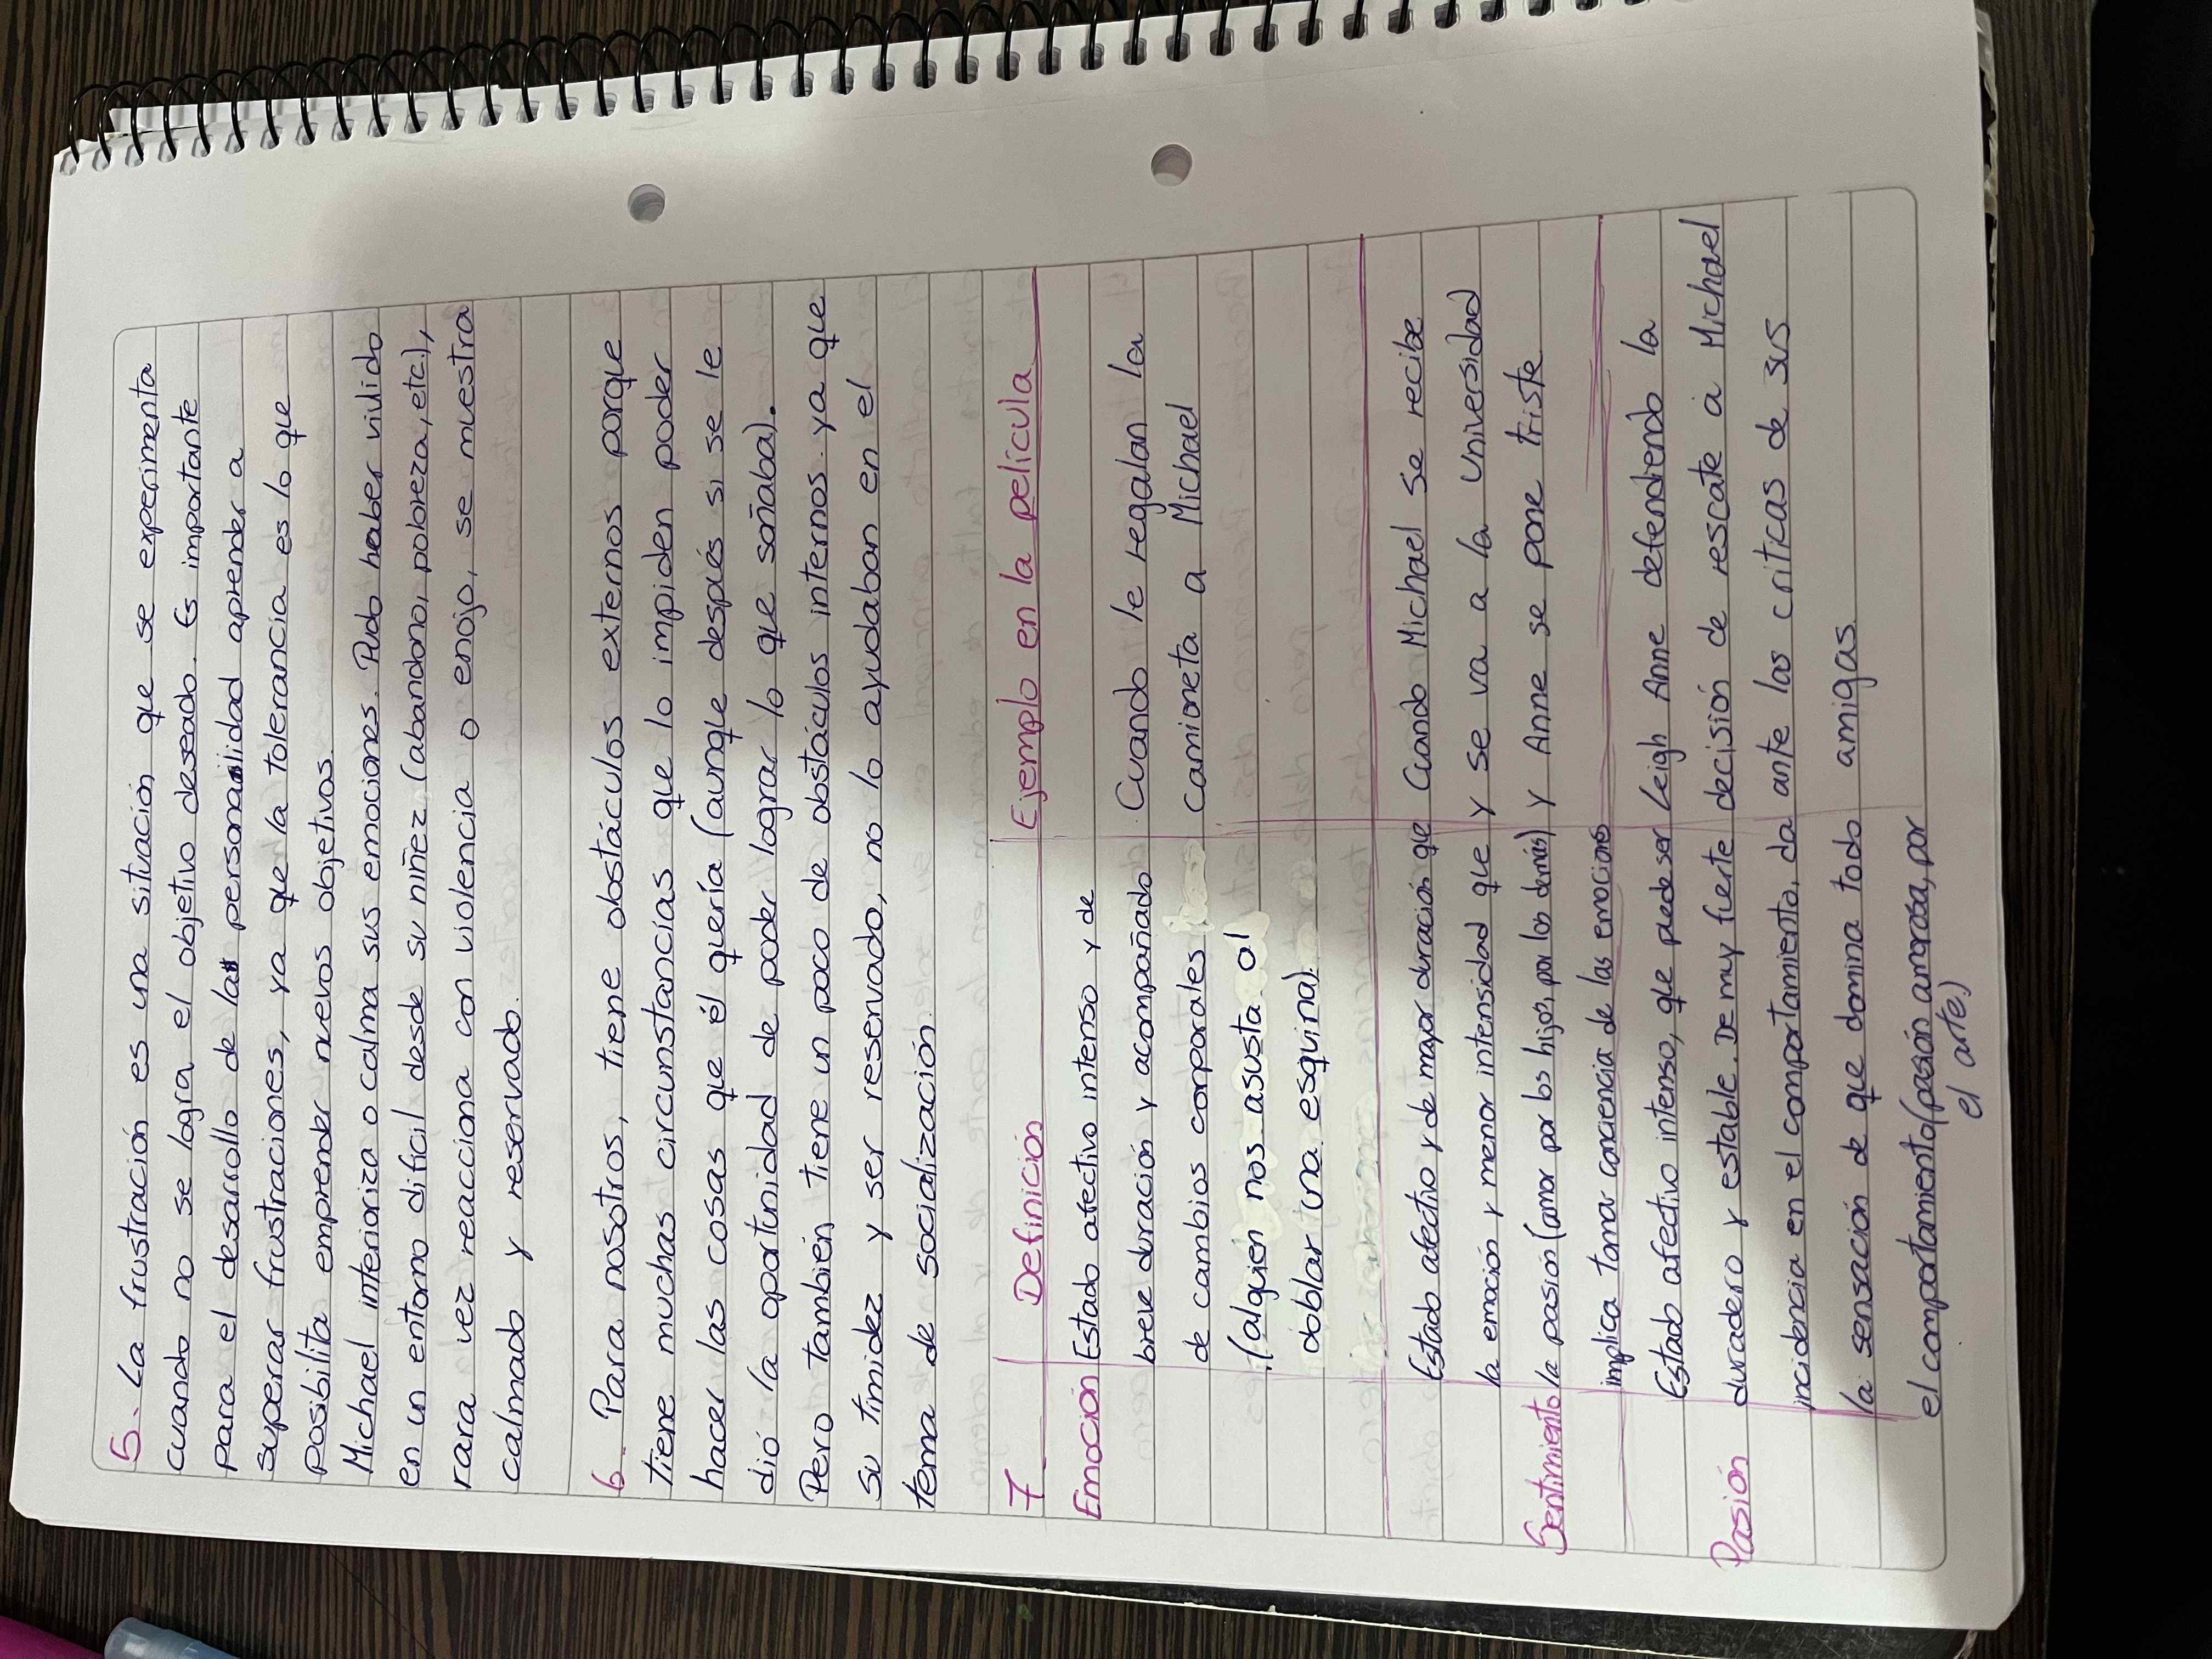 5. La frustración es una situación que se experimenta
cuando no se logra el objetivo deseado. Es importante
para el desarrollo de la personalidad aprender a
superar frustraciones, ya que la tolerancia es lo que
posibilita emprender nuevos objetivos.
Michael interioriza o calma sus emociones. Pudo haber vivido
en un entorno difícil desde su niñez (abandono, pobreza, etc.),
rara vez reacciona con violencia o enojo, se muestra
calmado y reservado.
6. Para nosotros, tiene obstáculos externos porque
tiene muchas circunstancias que lo impiden poder
hacer las cosas que él quería (aunque después si se le
dió la oportunidad de poder lograr lo que soñaba).
Pero también tiene un poco de obstáculos internos ya que
su timidez y ser reservado, no lo ayudaban en el
tema de socialización.
7 Definición Ejemplo en la película
Emoción Estado afectivo intenso y de
breve duración y acompañado
de cambios corporales
(alguien nos asusta al
doblar una esquina).
Cuando le regalan la
camioneta a Michael
Sentimiento
Estado afectivo y de mayor duración que
la emoción y menor intensidad que
la pasión (amor por los hijos, por los demás)
implica tomar conciencia de las emociones
Cuando Michael se recibe
y se va a la universidad
y Anne se pone triste
Pasión
Estado afectivo intenso, que puede ser
duradero y estable. De muy fuerte
incidencia en el comportamiento, da
la sensación de que domina todo
el comportamiento (pasión amorosa, por
el arte.)
Leigh Anne defendiendo la
decisión de rescate a Michael
ante las criticas de sus
amigas